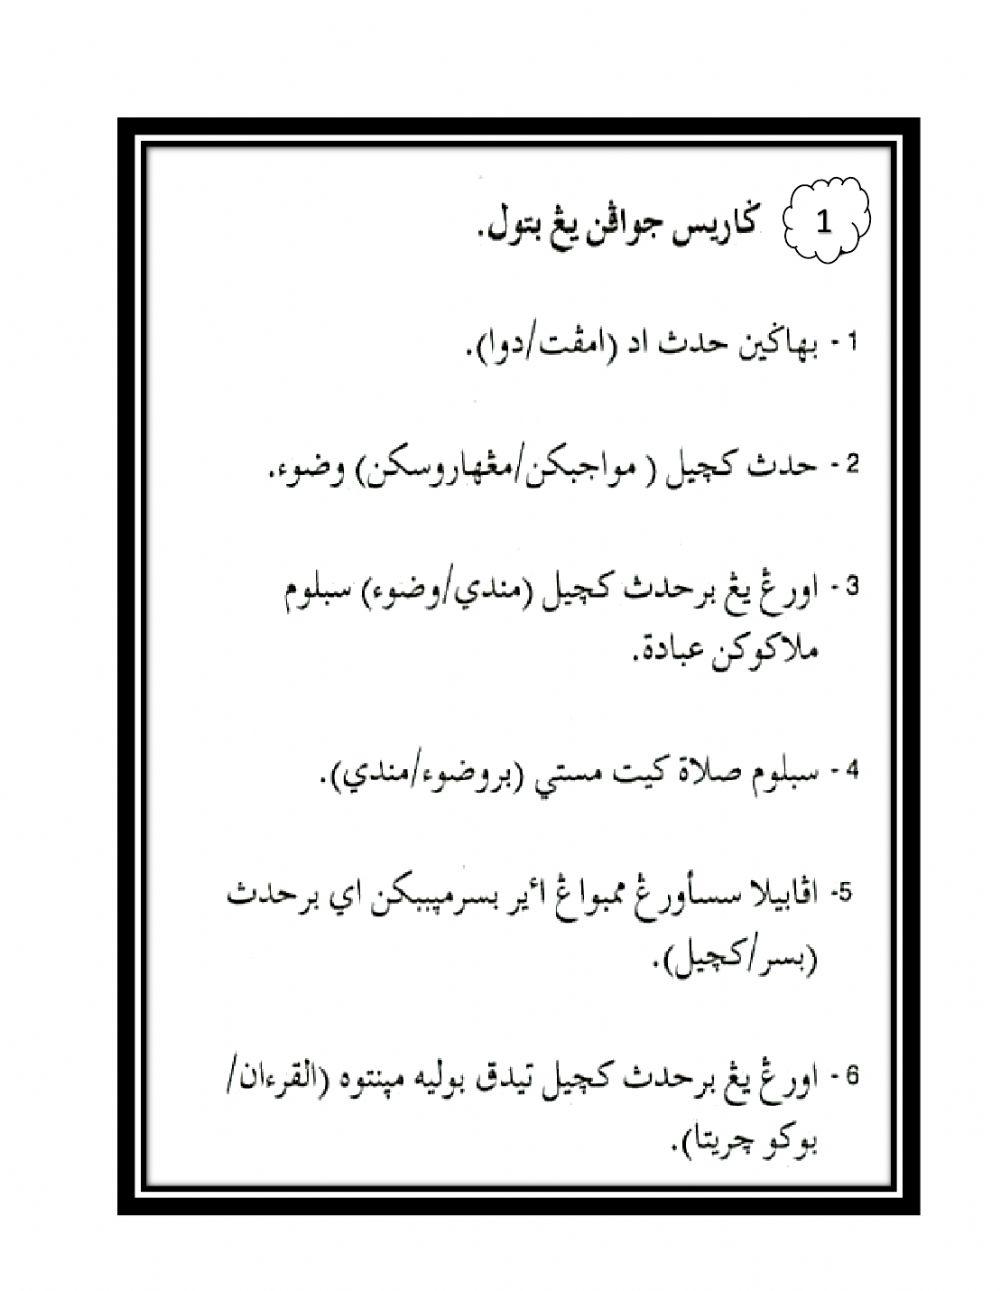 1 ݢاريس جواڤن يڠ بتول.
1 - بهاݢين حدث اد (امڤت/دوا).
2 - حدث کچيل ( مواجبکن/مڠهاروسکن) وضوء.
3 - اورڠ يڠ برحدث کچيل (مندي/وضوء) سبلوم
ملاکوکن عبادة.
4 - سبلوم صلاة کيت مستي (بروضوء/مندي).
5- اڤابيلا سسأورڠ ممبواڠ اٴير بسرمڽببکن اي برحدث
(بسر/کچيل).
6 - اورڠ يڠ برحدث کچيل تيدق بوليه مڽنتوه (القرءان/
بوکو چريتا).